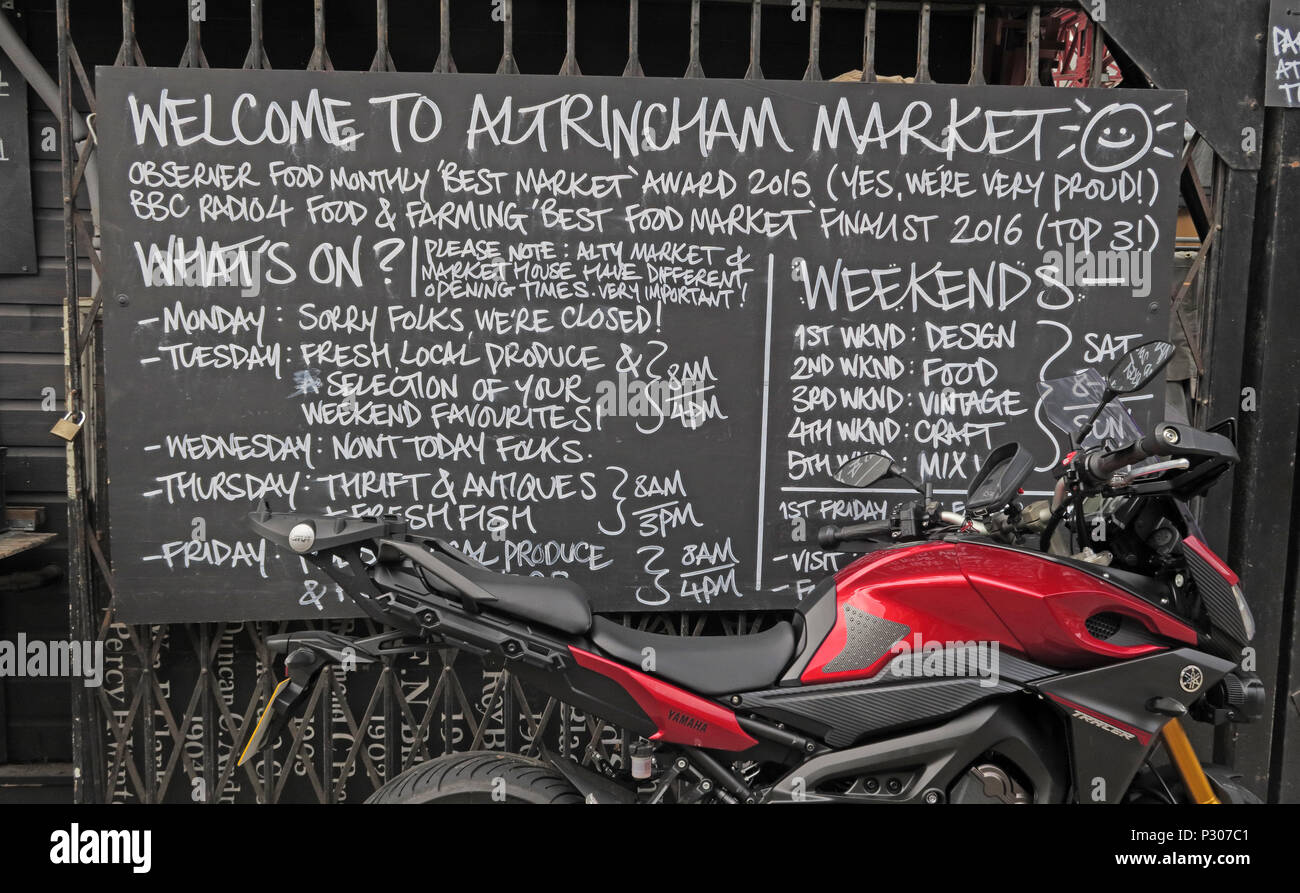 WELCOME TO ALTRINCHAM MARKET
OBSERVER FOOD MONTHLY 'BEST MARKET' AWARD 2015. (YES, WE'RE VERY PROUD!)
BBC RADIO 4 FOOD & FARMING 'BEST FOOD MARKET' FINALIST 2016 (TOP 3!)
WHAT'S ON?
PLEASE NOTE: ALTY MARKET &
MARKET HOUSE HAVE DIFFERENT
OPENING TIMES. VERY IMPORTANT!
- MONDAY: SORRY FOLKS, WE'RE CLOSED!
- TUESDAY: FRESH, LOCAL, PRODUCE &
A SELECTION OF YOUR
WEEKEND FAVOURITES!
8AM
4PM
- WEDNESDAY: NOWT TODAY FOLKS.
- THURSDAY: THRIFT & ANTIQUES
+ FRESH FISH
8AM
3PM
- FRIDAY: LOCAL PRODUCE
&
8AM
4PM
WEEKENDS -
1ST WKND: DESIGN
2ND WKND: FOOD
3RD WKND: VINTAGE
4TH WKND: CRAFT
5TH WKND: MIX
SAT
8
SUN
1ST FRIDAY
- VISIT
YAMAHA
TRACER
GIVI
alamy
Image ID: P307C1
www.alamy.com